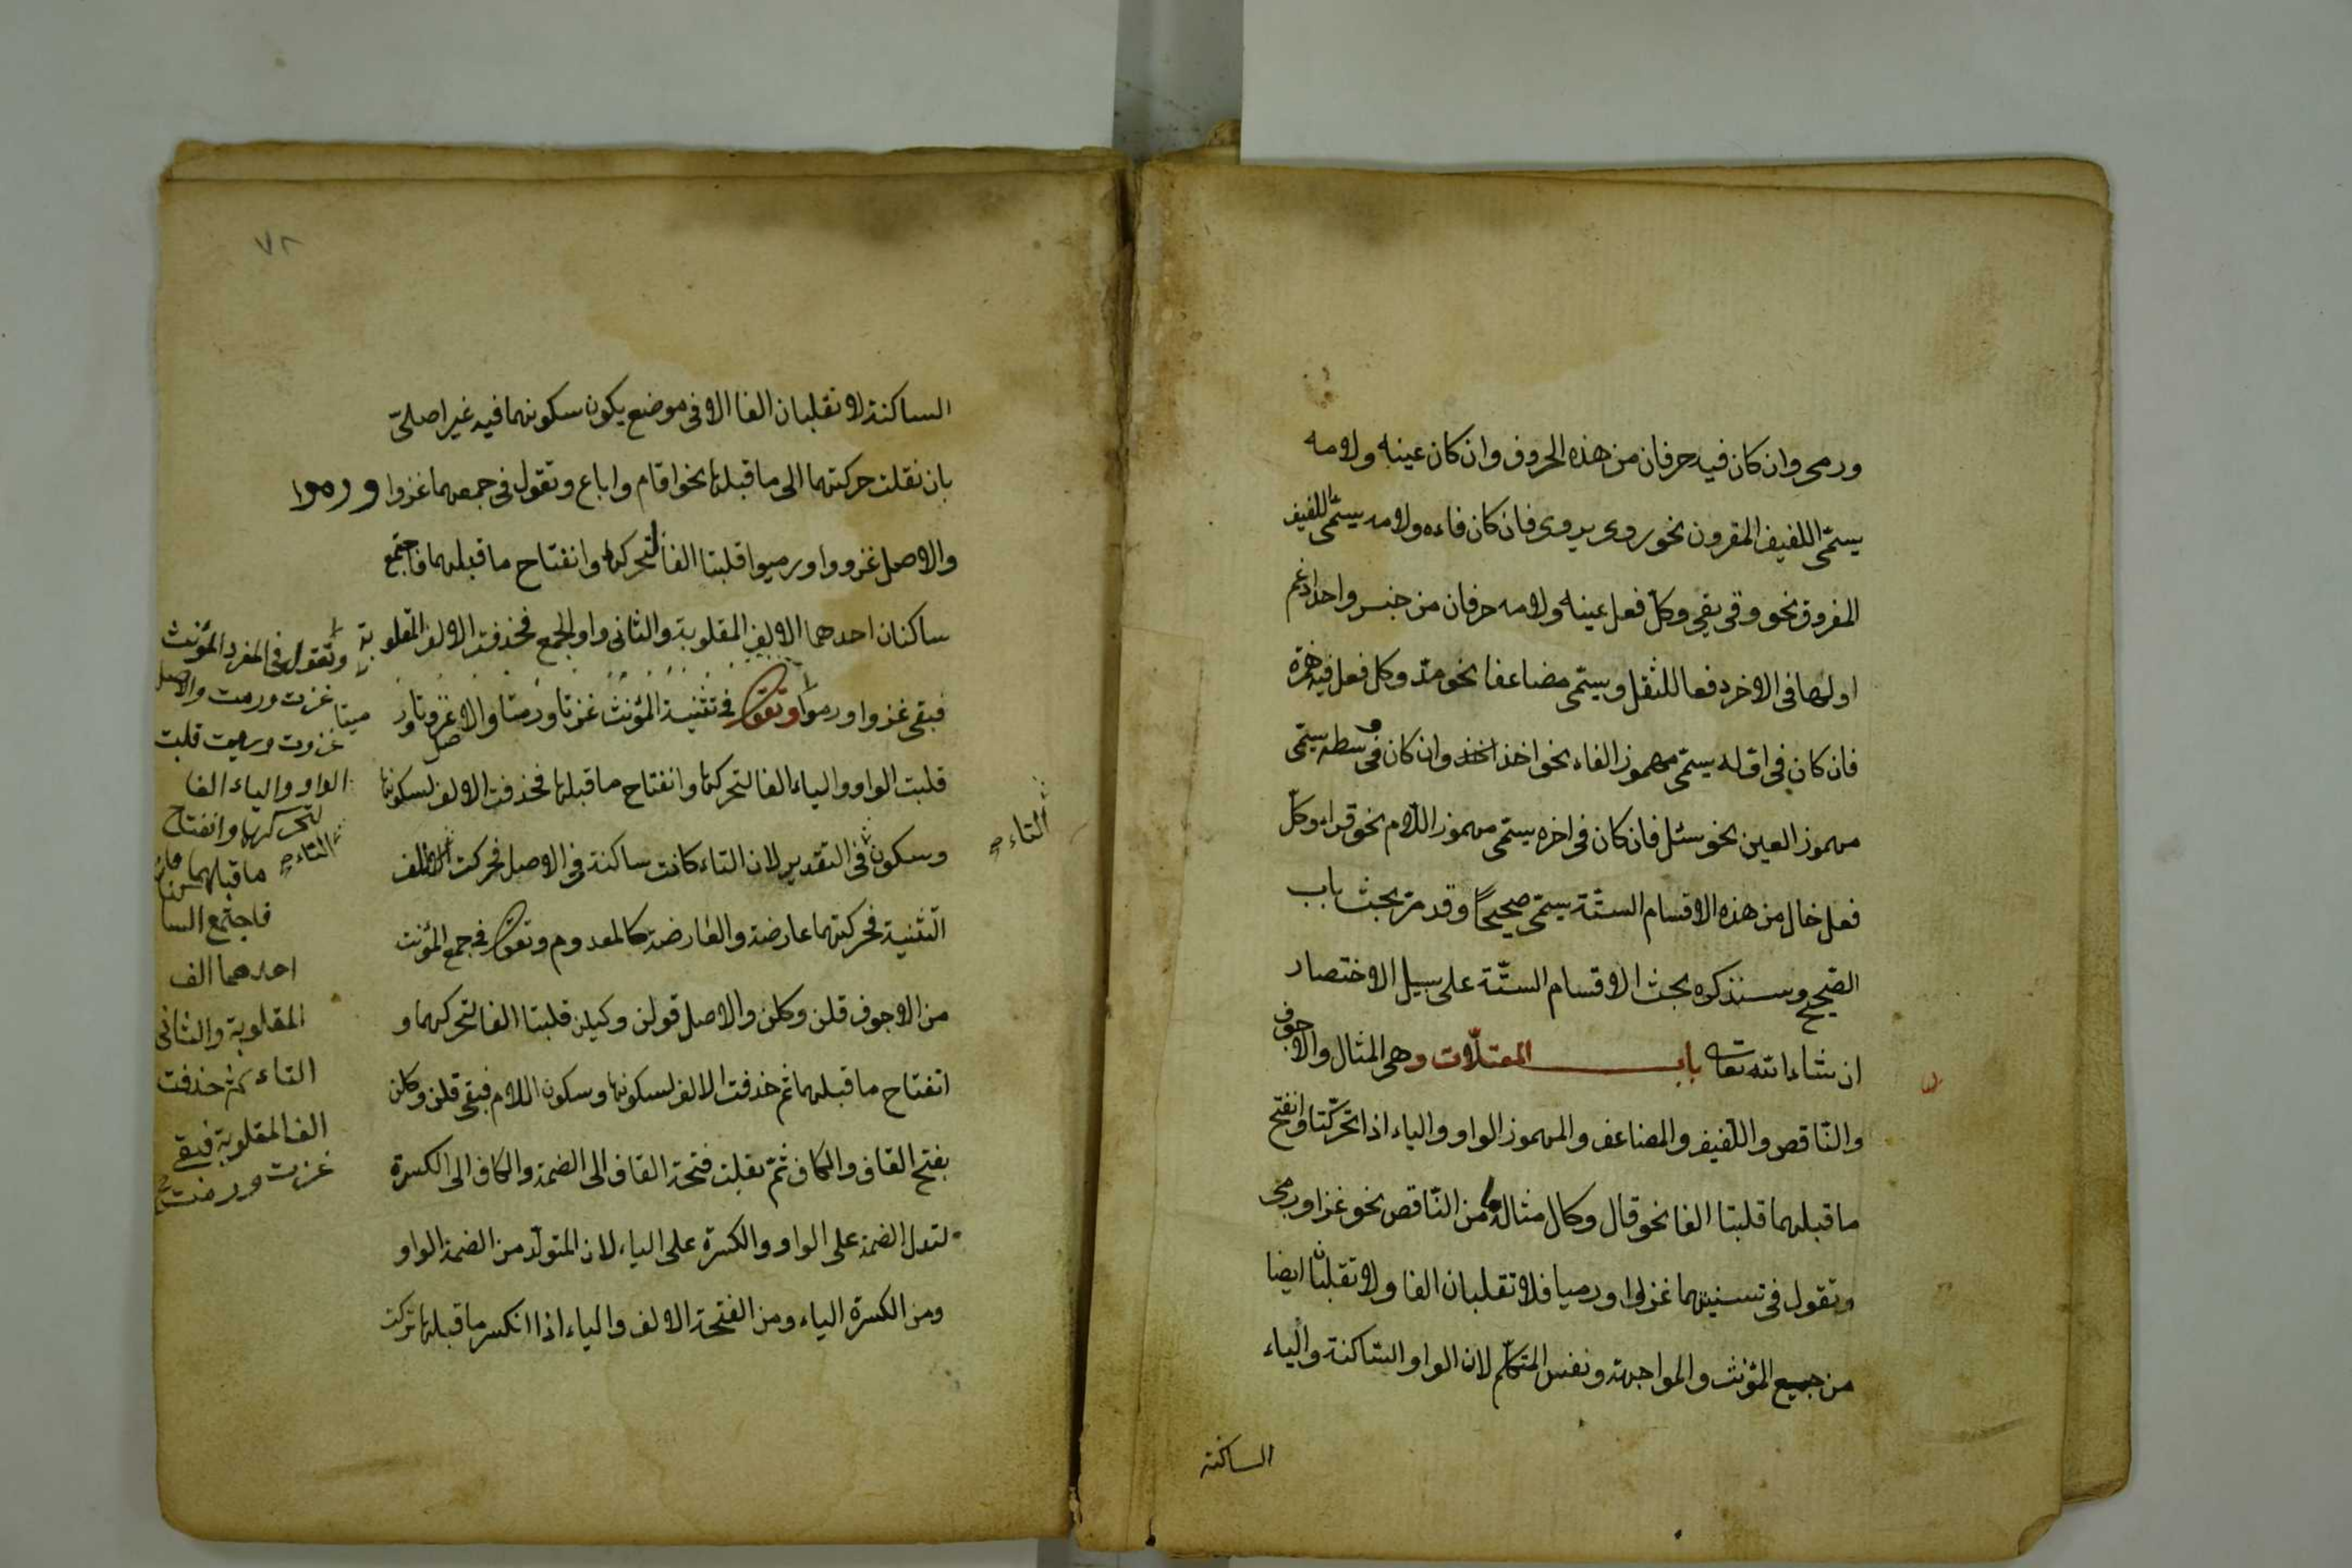 ورمى وان كان فيه حرفان من هذه الحروف وان كان عينه ولامه
يسمّى اللفيف المقرون نحو روى يروى فان كان فاءه ولامه يسمّى اللفيف
المفروق نحو وقى يقى وكلّ فعل عينه ولامه حرفان من جنس واحد ادغم
اولهما فى الاخر دفعا للثقل ويسمّى مضاعفا نحو مدّ وكل فعل فيه همزة
فان كان فى اوّله يسمّى مهموز الفاء نحو اخذ وان كان فى وسطه يسمّى
مهموز العين نحو سئل فان كان فى اخره يسمّى مهموز اللّام نحو قراء وكلّ
فعل خال من هذه الاقسام الستّة يسمّى صحيحًا وقد مرّ بحث باب
الصّحيح وسنذكره بحث الاقسام الستّة على سبيل الاختصار
ان شاء الله تعا باب المعتلّات وهى المثال والاجوف
والنّاقص واللّفيف والمضاعف والمهموز الواو والياء اذا تحرّكتا وانفتح
ما قبلهما قلبتا الفا نحو قال وكال مثالهما من النّاقص نحو غزا ورمى
وتقول فى تسنيتهما غزوا ورميا فلا تقلبان الفا ولا تقلبان ايضا
من جميع المؤنث والمواجهة ونفس المتكلّم لان الواو السّاكنة والياء
الساكنة
٧٢
الساكنة لا تقلبان الفا الا فى موضع يكون سكونهما فيه غير اصلىّ
بان نقلت حركتهما الى ما قبلها نحو اقام واباع وتقول فى جمعهما غزوا ورموا
والاصل غزووا ورميوا قلبتا الفا لتحركهما وانفتاح ما قبلهما فاجتمع
ساكنان احدهما الالف المقلوبة والثانى واو الجمع فحذفت الالف المقلوبة
فبقى غزوا ورموا وتقول فى تثنية المؤنث غزتا ورمتا والاصل غزوتا ورميتا
قلبت الواو والياء الفا لتحركها وانفتاح ما قبلها فحذفت الالف لسكونها
وسكون فى التقدير لان التاء كانت ساكنة فى الاصل فحركت لالف
التّثنية فحركتهما عارضة والعارضة كالمعدوم وتقول فى جمع المؤنث
من الاجوف قلن وكلن والاصل قولن وكيلن قلبتا الفا لتحركهما و
انفتاح ما قبلهما ثم حذفت الالف لسكونها وسكون اللام فبقى قلن وكلن
بفتح القاف والكاف ثمّ نقلت فتحة القاف الى الضمة والكاف الى الكسرة
لتدل الضمة على الواو والكسرة على الياء لان المتولّد من الضمة الواو
ومن الكسرة الياء ومن الفتحة الالف والياء اذا انكسر ما قبلها تركت
التاء
وتقول فى المفرد المؤنث
غزت ورمت والاصل
غزوت ورميت قلبت
الواو والياء الفا
لتحركها وانفتاح
التاء
ما قبلهما
فاجتمع السا
احدهما الف
المقلوبة والثانى
التاء ثم حذفت
الف المقلوبة فبقى
غزت ورمت